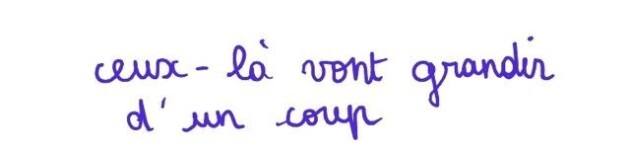 ceux-là vont grandir
d'un coup